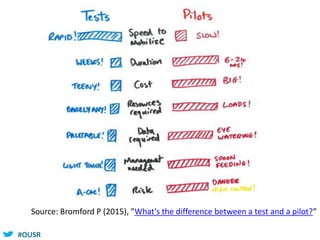 Tests Pilots
RAPID! Speed to mobilize SLOW!
WEEKS! Duration 6-24 MTHS!
TEENY! Cost BIG!
BARELY ANY! Resources required LOADS!
PALATABLE! Data required EYE WATERING!
LIGHT TOUCH! Management needed SPOON FEEDING!
A-OK! Risk DANGER HIGH VOLTAGE!
Source: Bromford P (2015), "What's the difference between a test and a pilot?"
#OUSR